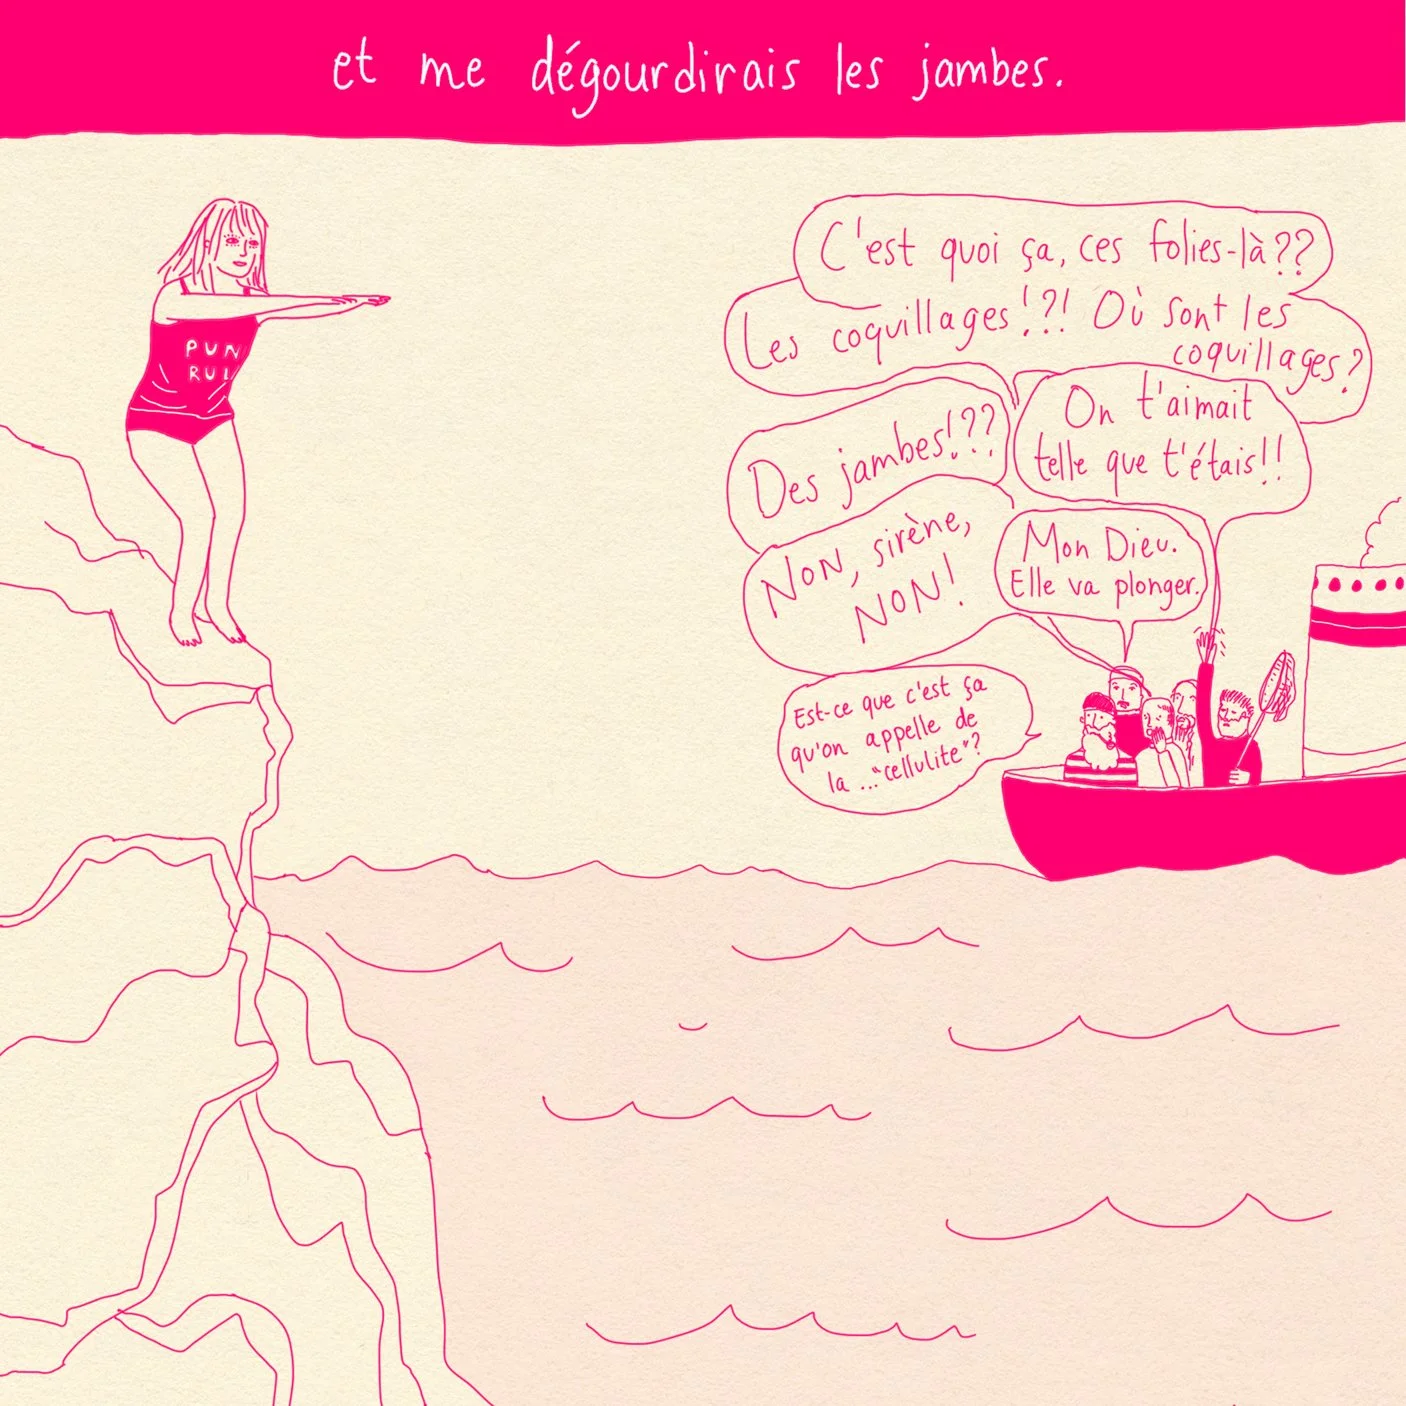 et me dégourdirais les jambes.
C'est quoi ça, ces folies-là??
Les coquillages!?! Où sont les
coquillages?
Des jambes!??
On t'aimait
telle que t'étais!!
NON, sirène,
NON!
Mon Dieu.
Elle va plonger.
Est-ce que c'est ça
qu'on appelle de
la ..."cellulite"?
PUN
RUL